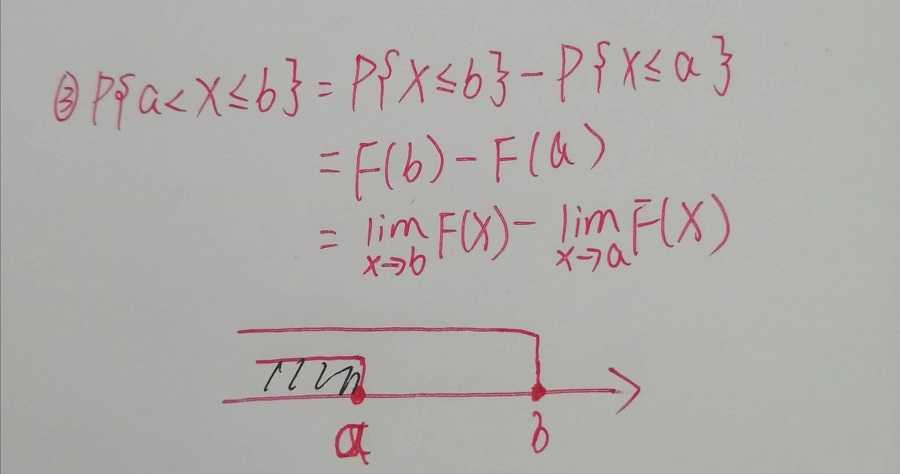 ③ P{a<X≤b} = P{X≤b} - P{X≤a}
= F(b) - F(a)
= lim x→b F(X) - lim x→a F(X)
a b